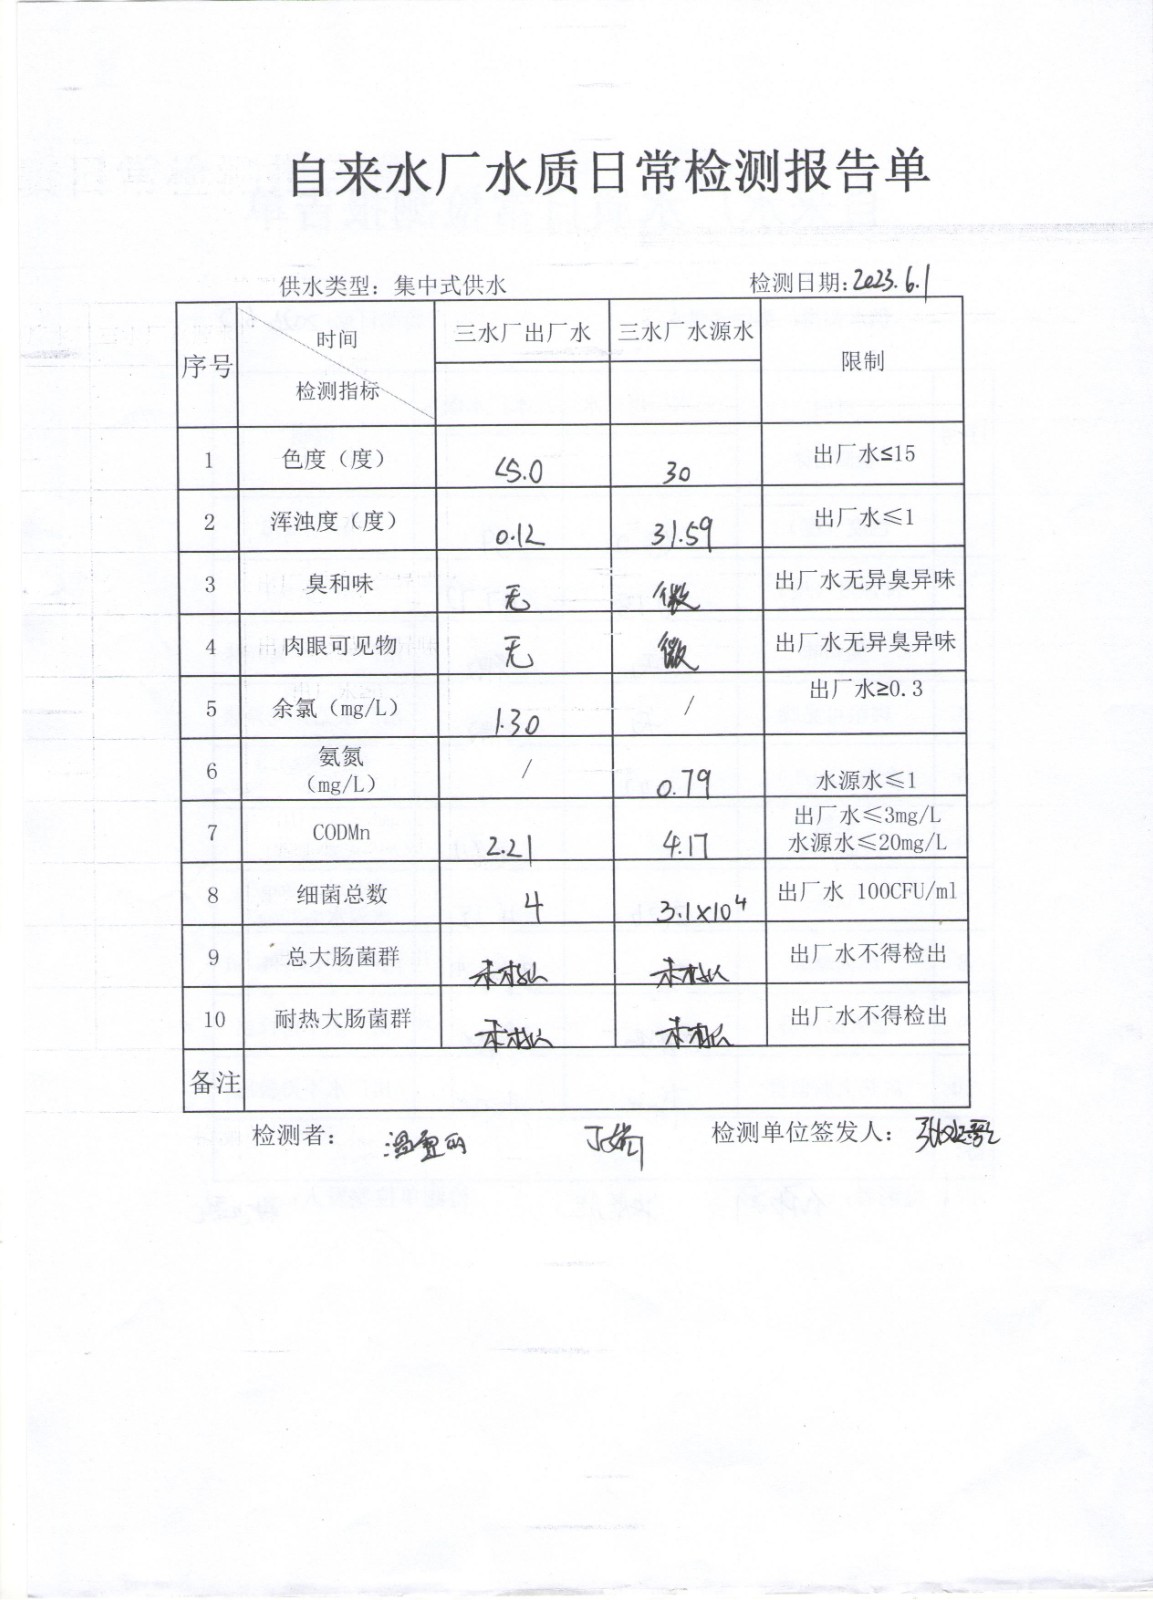 自来水厂水质日常检测报告单
供水类型：集中式供水 检测日期:2023.6.1
序号 时间 检测指标 三水厂出厂水 三水厂水源水 限制
1 色度（度） <5.0 30 出厂水≤15
2 浑浊度（度） 0.12 31.59 出厂水≤1
3 臭和味 无 微 出厂水无异臭异味
4 肉眼可见物 无 微 出厂水无异臭异味
5 余氯（mg/L） 1.30 / 出厂水≥0.3
6 氨氮（mg/L） / 0.79 水源水≤1
7 CODMn 2.21 4.17 出厂水≤3mg/L 水源水≤20mg/L
8 细菌总数 4 3.1×10⁴ 出厂水 100CFU/ml
9 总大肠菌群 未检出 未检出 出厂水不得检出
10 耐热大肠菌群 未检出 未检出 出厂水不得检出
备注
检测者： 检测单位签发人：